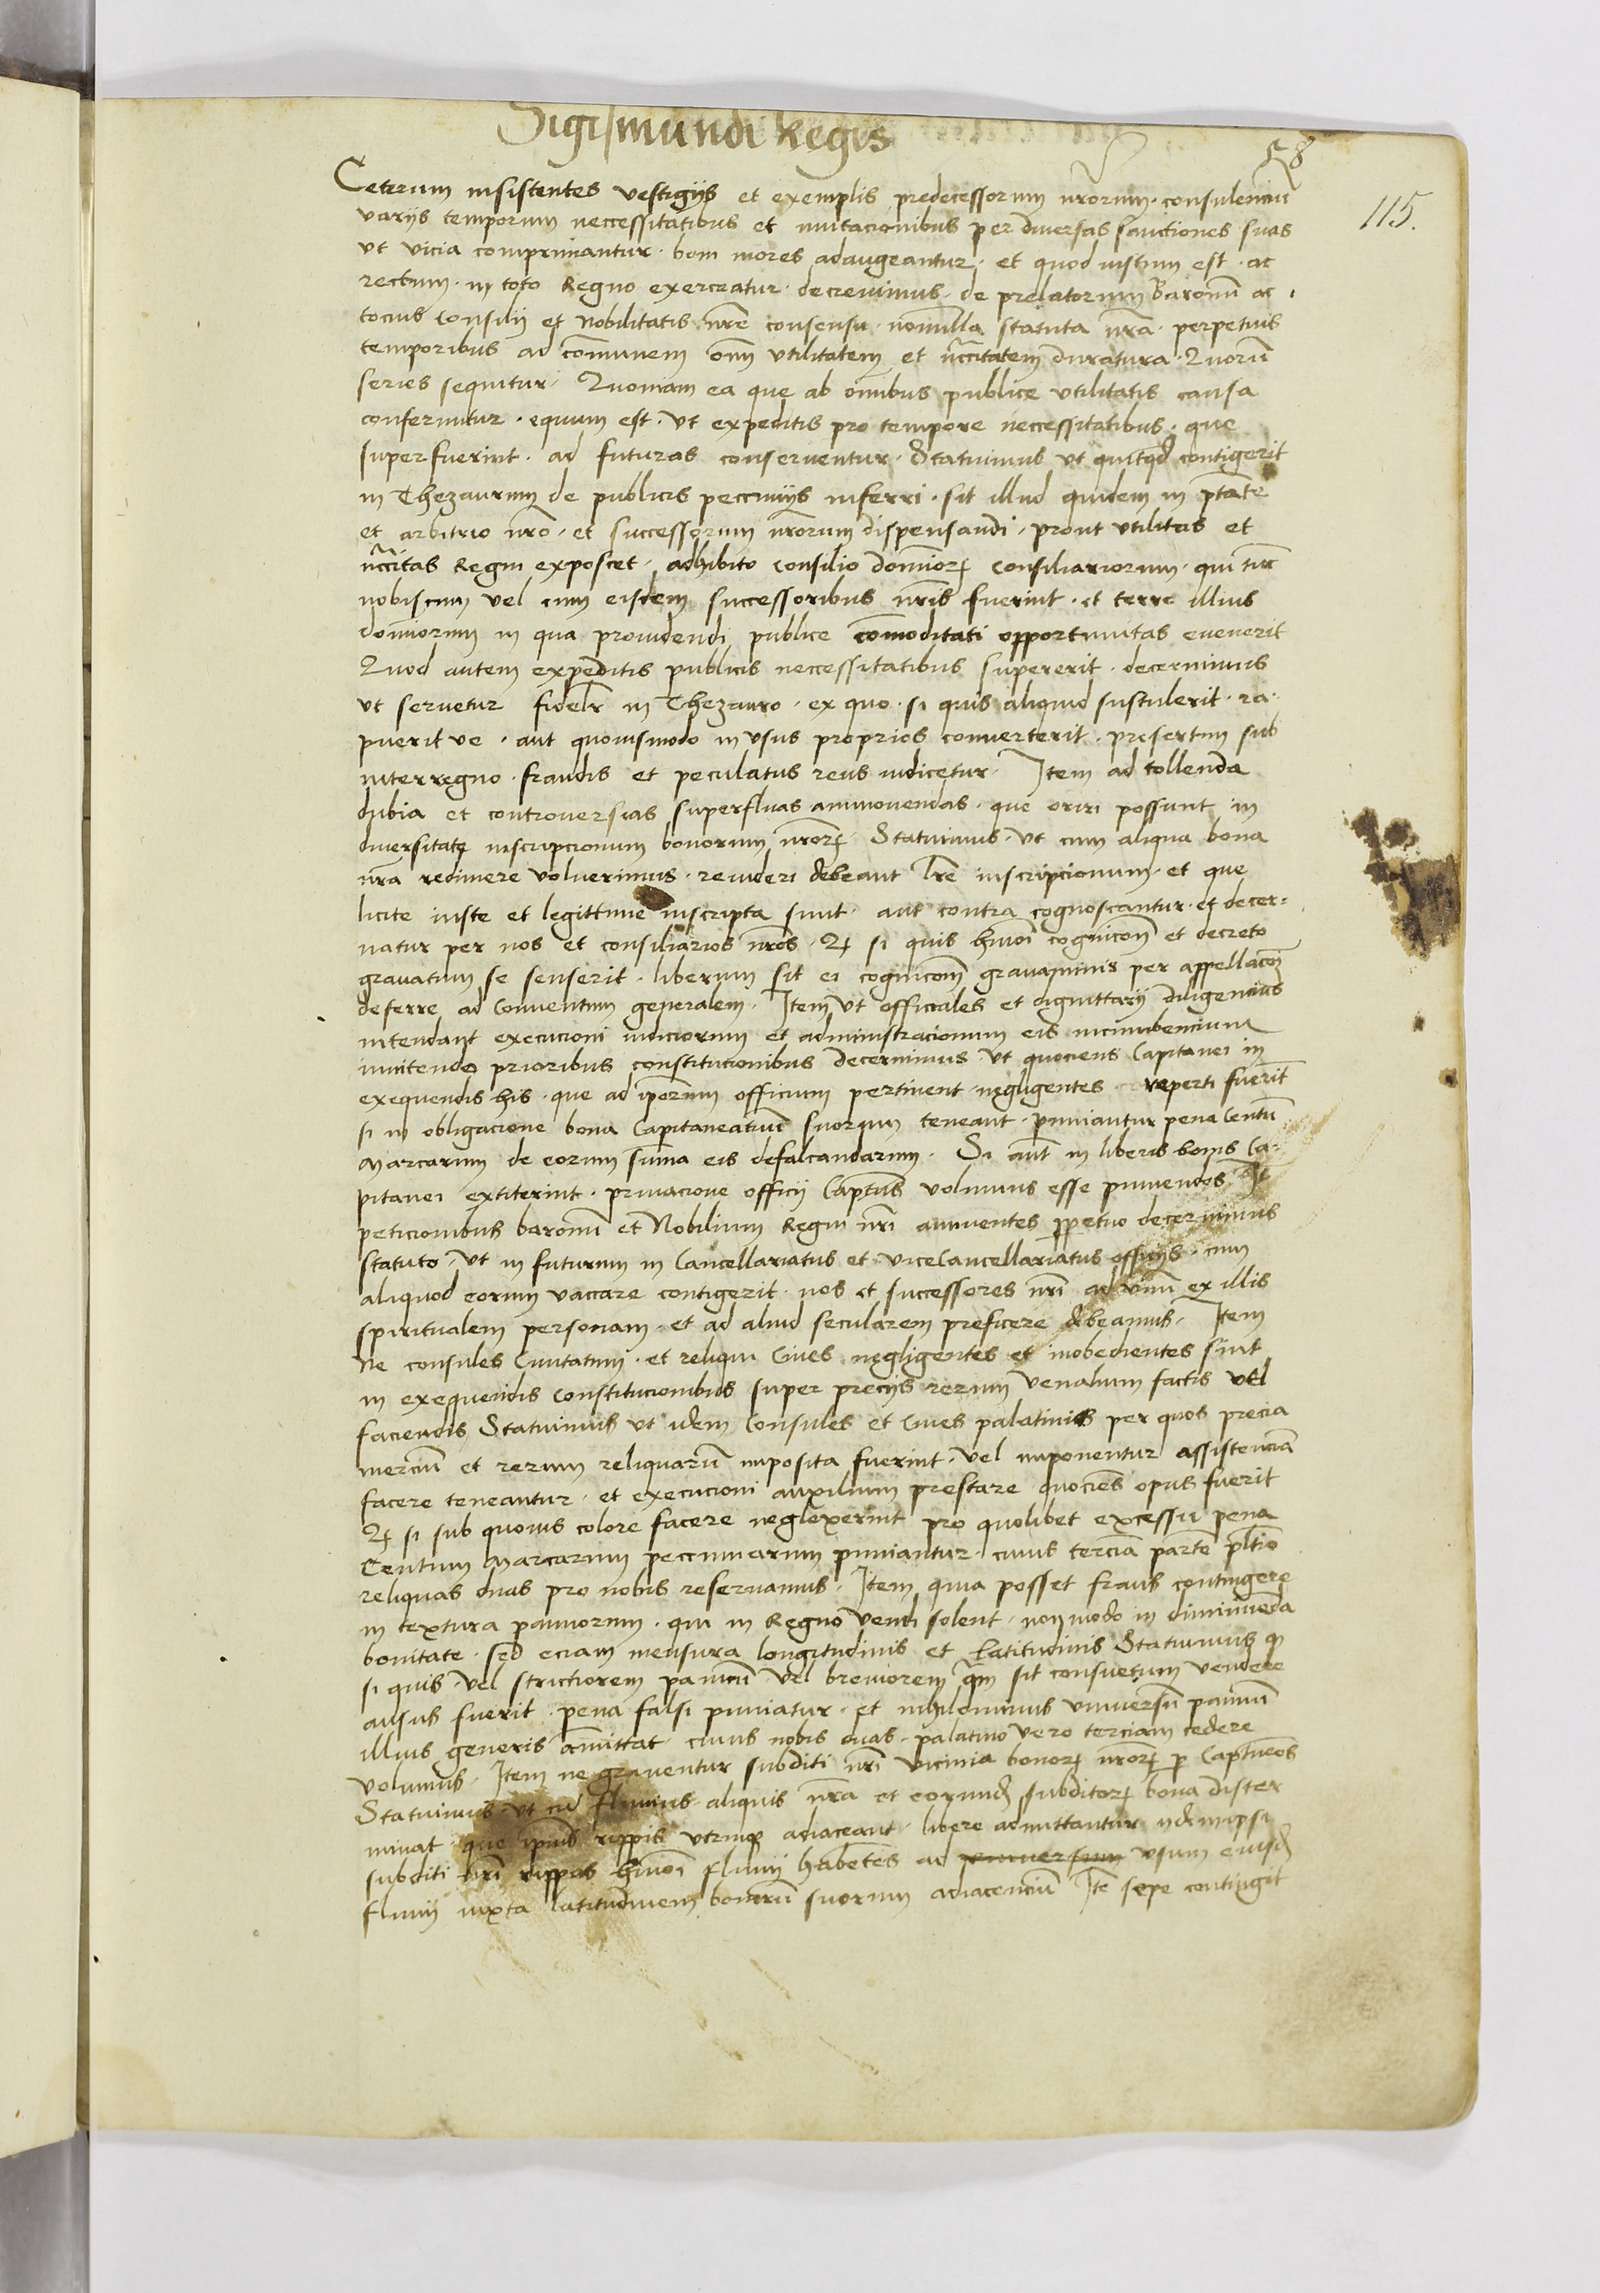 Sigismundi Regis
58
115.
Ceterum insistentes vestigijs et exemplis predecessorum nrorum. consulenciu
varijs temporum neccessitatibus et mutacionibus per diuersas sanctiones suas
vt vicia comprimantur. boni mores adaugeantur. et quod iustum est. ac
rectum. in toto Regno exerceatur. decreuimus. de prelatorum Baronu ac
tocius Consilij et Nobilitatis nre consensu. nonnulla statuta nra. perpetuis
temporibus ad comunem om̄ vtilitatem et nccitatem duratura. Quoru
series sequitur. Quoniam ea que ab omibus publice vtilitatis causa
conferuntur. equum est. vt expeditis pro tempore neccessitatibus. que
superfuerint. ad futuras conseruentur. Statuimus vt quitqd contigerit
in Thezaurum de publicis peccunijs inferri. sit illud quidem in ptate
et arbitrio nro. et successorum nrorum dispensandi. prout vtilitas et
nccitas Regni exposcet. adhibito consilio dominorꝝ consiliariorum. qui tuc
nobiscum vel cum eisdem successoribus nris fuerint. et terre illius
dominorum in qua prouidendi publice comoditati opportunitas euenerit
Quod autem expeditis publicis neccessitatibus supererit. decernimus
vt seruetur fidelr in Thezauro. ex quo. si quis aliquid sustulerit. ra
puerit ve. aut quouismodo in vsus proprios conuerterit. presertim sub
interregno. fraudis et peculatus reus iudicetur. Item ad tollenda
dubia et controuersias superfluas ammouendas. que oriri possunt in
diuersitate inscripcionum bonorum nrorꝝ Statuimus. vt cum aliqua bona
nra redimere voluerimus. reuideri debeant lre inscripcionum. et que
licite iuste et legittime inscripta sunt. aut contra cognoscantur. et decer=
natur per nos et consiliarios nros. Qꝫ si quis hmoi cognicōē et decreto
grauatum se senserit. liberum sit ei cognicōem grauaminis per appellacōē
deferre ad Conuentum generalem. Item vt officiales et dignittarij diligencius
intendant execucioni iudiciorum et administracionum eis incumbencium
innitendo prioribus constitucionibus decernimus. vt quociens Capitanei in
exequendis his. que ad ipsorum officium pertinent negligentes reperti fuerit
si in obligacione bona Capitaneatuu suorum teneant. puniantur pena Centu
Marcarum de eorum suma eis defalcandarum. Si aut in liberis bonis Ca-
pitanei extiterint. priuacione officij Captus volumus esse puniendos. It
peticionibus baronu et Nobilium Regni nri annuentes ppetuo decernimus
statuto. vt in futurum in Cancellariatus et viceCancellariatus officijs. cum
aliquod eorum vaccare contigerit. nos et successores nri ad vnu ex illis
spiritualem personam. et ad aliud secularem preficere debeamus. Item
Ne consules Ciuitatum. et reliqui Ciues negligentes et inobedientes sint
in exequendis Constitucionibus super precijs rerum venalium factis vel
faciendis Statuimus vt idem Consules et Ciues palatinis per quos precia
merciu et rerum reliquaru imposita fuerint. vel imponentur assistencia
facere teneantur. et execucioni auxilium prestare quocies opus fuerit
Qꝫ si sub quouis colore facere neglexerint pro quolibet excessu pena
Centum Marcarum peccuniarum puniantur. cuius tercia parte pltino
reliquas duas pro nobis reseruamus. Item quia posset fraus contingere
in textura pannorum. qui in Regno vendi solent. non modo in diminueda
bonitate. sed eciam mensura longitudinis et latitudinis Statuimus qꝫ
si quis. vel strictiorem pannu vel breuiorem qm sit consuetum vendere
ausus fuerit. pena falsi puniatur. et nihilominus vniuersu pannu
illius generis amittat. cuius nobis duas. palatino vero terciam cedere
volumus. Item ne grauentur subditi nri vicinia bonorꝝ nrorꝝ p Captneos
Statuimus. vt cu fluuius aliquis nra et eorundꝫ subditorꝝ bona dister
minat. que ipius rippis vtrinqꝫ adiaceant. libere admittantur ijdemipsi
subditi nri rippas hmoi fluuij habetes ad vsum eiusdꝫ
fluuij iuxta latitudinem bonoru suorum adiacenciu Ite sepe contingit